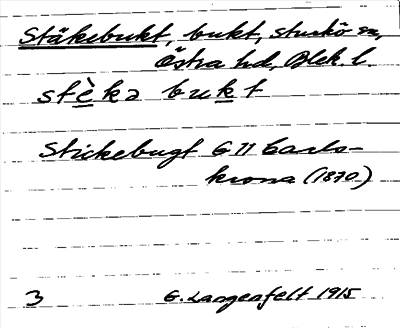 Stäkebukt, bukt, Sturkö sn,
Östra hd, Blek. l.
stè̱kə buḵt
Stickebugt G 11 Carls-
krona (1870)
3 G. Langenfelt 1915